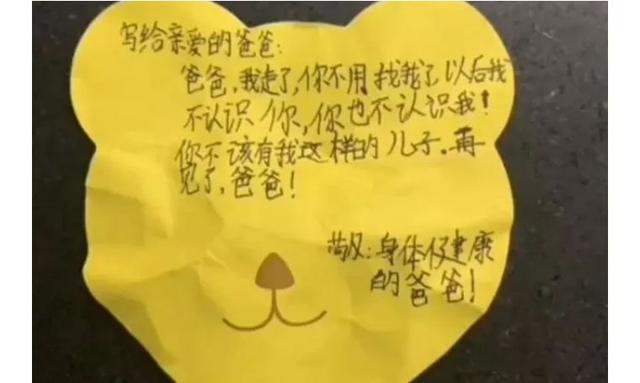 写给亲爱的爸爸:
爸爸,我走了,你不用找我了,以后我
不认识你,你也不认识我!
你不该有我这样的儿子。再
见了,爸爸!
:身体健康
的爸爸!